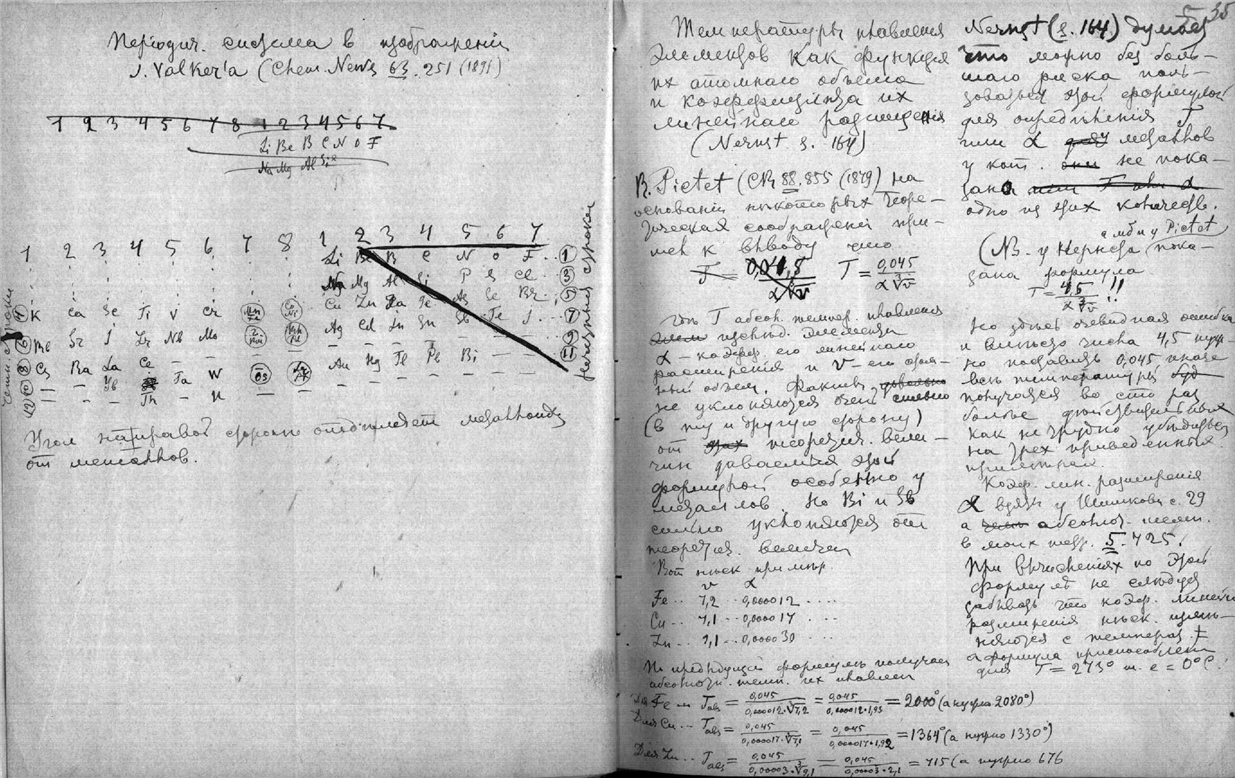 Періодич. система в изображеніи
J. Valker'а (Chem. News 63. 251 (1891)
1 2 3 4 5 6 7 8 1 2 3 4 5 6 7
Li Be B C N O F
Na Mg Al Si
1 2 3 4 5 6 7 8 1 2 3 4 5 6 7
Li Be B C N O F .. 1
Na Mg Al Si P S Cl .. 3
4 K Ca Sc Ti V Cr Cu Zn Ga Ge As Se Br .. 5
6 Rb Sr Y Zr Nb Mo Ag Cd In Sn Sb Te J .. 7
8 Cs Ba La Ce — — — — — — 9
10 — — Yb Ta W Os Au Hg Tl Pb Bi — — 11
12 — — — Th — U — — — — — —
нечетные строки
Угол направо сторону отделяет металлоиды
от металлов.
35
Температуры плавления
элементов как функция
их атомнаго объема
и коэффициента их
линейнаго расширенія
(Nernst s. 164)
R. Pictet (CR 88, 855 (1879) на
основаніи некоторых теоре-
тических соображеній при-
шел к выводу что
T = 0,04,5 / α∛v T = 0,045 / α∛v
где T абсол. темпер. плавления
элемента
α – коэф. его линейнаго
расширения и v – его атом-
ный объем. Факты довольно
не уклоняются очень сильно
(в ту и другую сторону)
от этих теоретич. вели-
чин даваемых этой
формулой особенно у
металлов. Но Bi и Sb
сильно уклоняются от
теоретич. величин
Вот неск. пример
v α
Fe .. 7,2 .. 0,000012 ....
Cu .. 7,1 .. 0,000017 ....
Zn .. 9,1 .. 0,000030 ...
По предыдущей формуле получаем
абсолютн. темп. их плавлен
Для Fe .. Tabs = 0,045 / 0,000012·∛7,2 = 0,045 / 0,000012·1,93 = 2000° (а нужно 2080°)
Для Cu .. Tabs = 0,045 / 0,000017·∛7,1 = 0,045 / 0,000017·1,92 = 1364° (а нужно 1330°)
Для Zn .. Tabs = 0,045 / 0,00003·∛9,1 = 0,045 / 0,00003·2,1 = 715 (а нужно 676
Nernst (s. 164) думает
что можно без боль-
шаго риска поль-
зоваться этой формулой
для определения T
или α металлов
у кот. они не пока-
зано или T или α
одно из этих количеств.
(NB. у Нернста пока-
зана формула
T = 4,5 / α∛v !!
Но здесь очевидная ошибка
и вместо числа 4,5 нуж-
но поставить 0,045 иначе
все температуры
получаются во сто раз
больше действительных
как не трудно убедиться
на трех приведенных
примерах
Коэф. лин. расширения
α взят у Шишкова с. 29
а абсолют. темп.
в моих пер. 5. 425.
При вычислениях по этой
формуле не следует
забывать что коэф. линейн
расширения неск. изме-
няются с температ.
а формула приспособлена
для T = 273° т. е = 0°C.